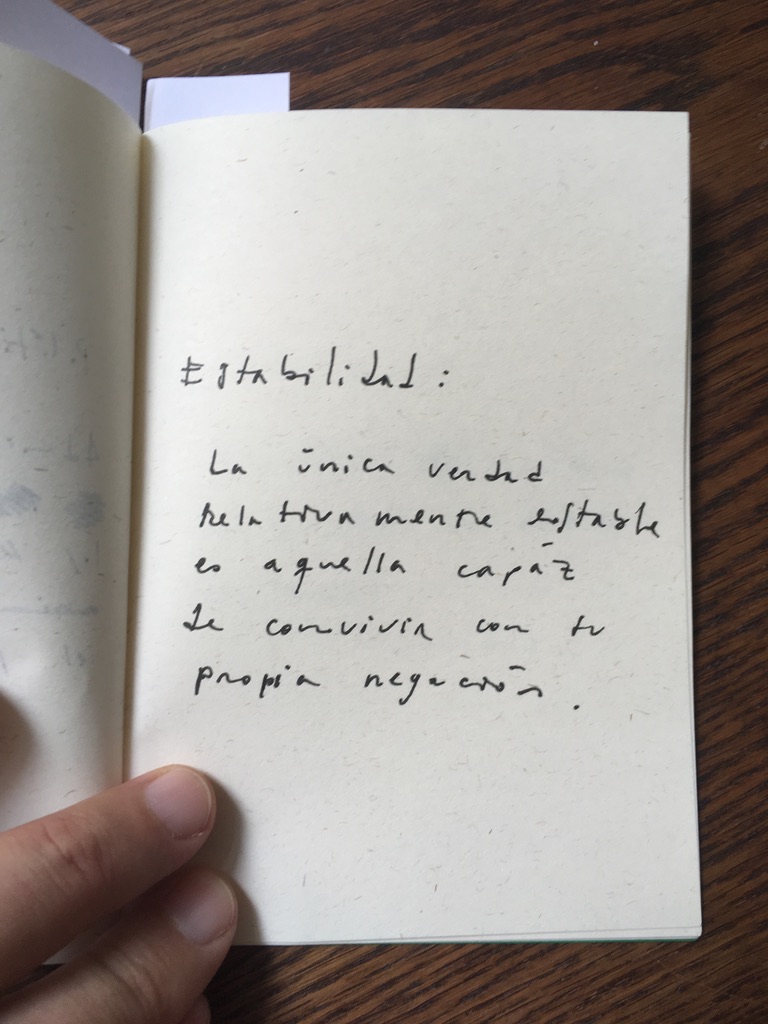 Estabilidad:
La única verdad
Relativamente estable
es aquella capáz
de convivir con su
propia negación.